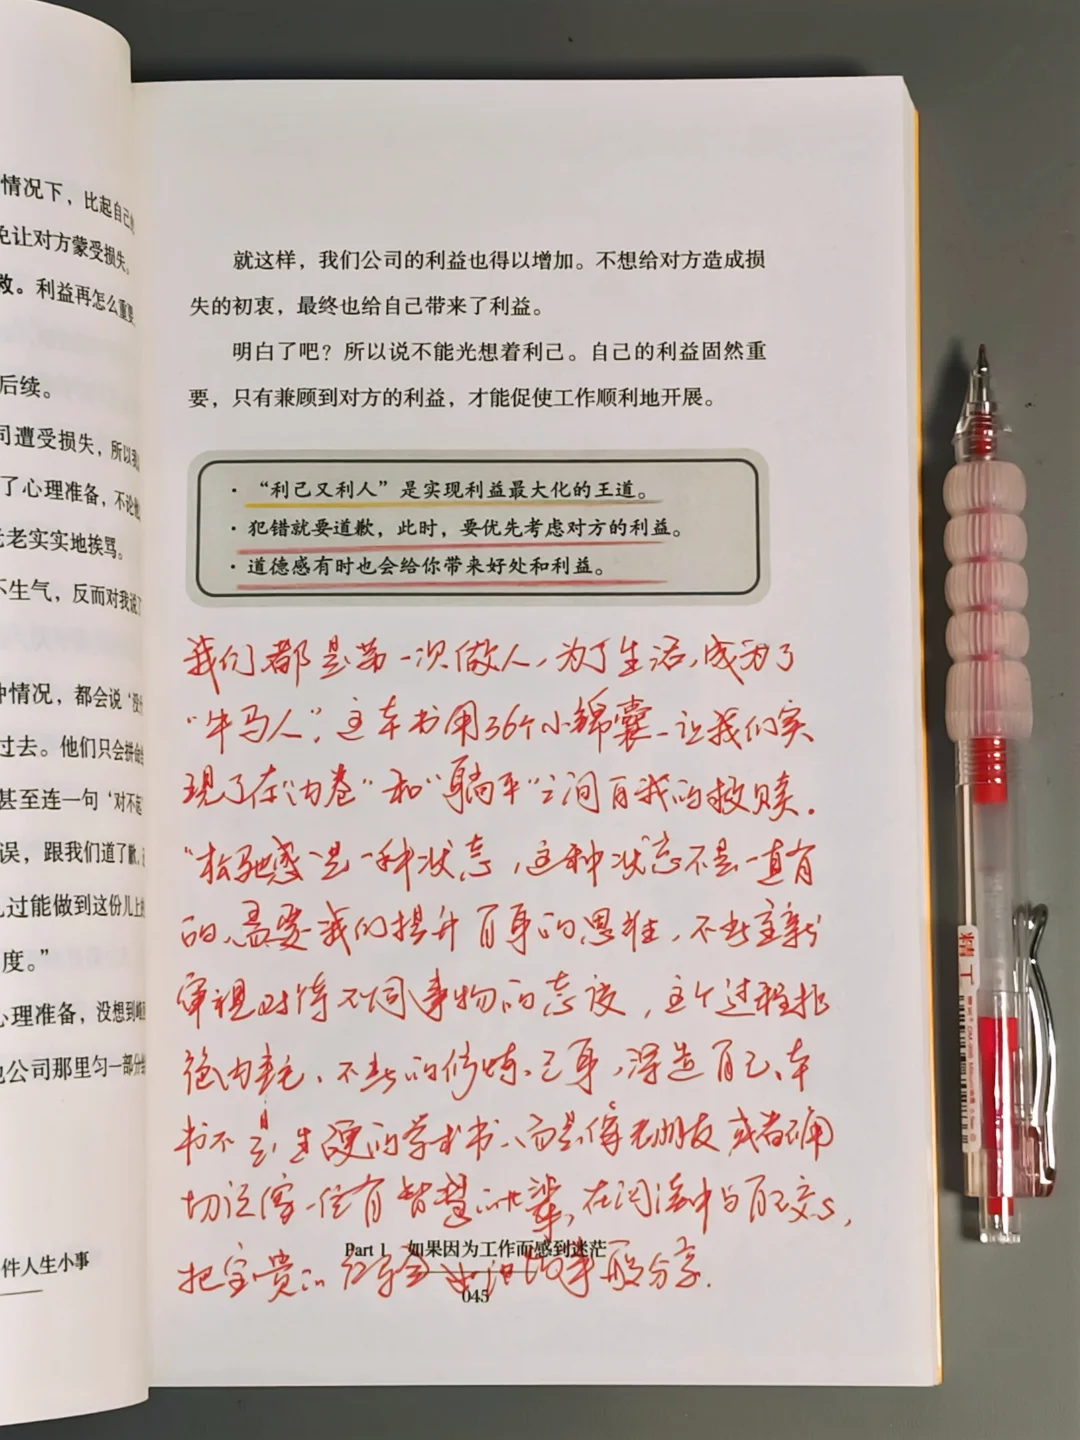 情况下，比起自己
免让对方蒙受损失。
救。利益再怎么重要
后续。
司遭受损失，所以我
了心理准备，不论他
老老实实地挨骂。
不生气，反而对我说了
情况，都会说‘没
过去。他们只会拼命
甚至连一句‘对不起’
误，跟我们道了歉，
过能做到这份儿上的
度。”
心理准备，没想到
公司那里匀一部分
件人生小事
就这样，我们公司的利益也得以增加。不想给对方造成损
失的初衷，最终也给自己带来了利益。
明白了吧？所以说不能光想着利己。自己的利益固然重
要，只有兼顾到对方的利益，才能促使工作顺利地开展。
· “利己又利人”是实现利益最大化的王道。
· 犯错就要道歉，此时，要优先考虑对方的利益。
· 道德感有时也会给你带来好处和利益。
我们都是第一次做人，为了生活，成为了
“牛马人”，这本书用36个小锦囊，让我们实
现了在“内卷”和“躺平”之间自我的救赎。
“松弛感”是一种状态，这种状态不是一直有
的，需要我们提升自身的思维，不断重新
审视对待不同事物的态度，这个过程拒
绝内耗、不断的修炼己身，深造自己，本
书不是生硬的学术书，而是像老朋友或者确
切说像一位有智慧的长辈，在阅读中与自己交心，
把宝贵的经验 故事般分享.
Part 1 如果因为工作而感到迷茫
045
精工